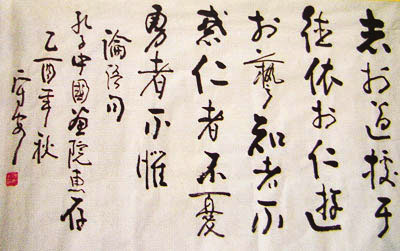 志於道據于
德依於仁遊
於藝知者不
惑仁者不憂
勇者不懼
論語句
孔子中國畫院惠存
乙酉年秋